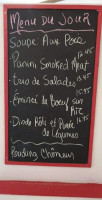 Menu du Jour
Soupe Aux Pois
- Panini Smoked Meat
10.45
- Trio de Salades
10.45
- Émincé de Boeuf sur
Riz
- Dinde Rôti et Purée
de Légumes
Pouding Chômeur